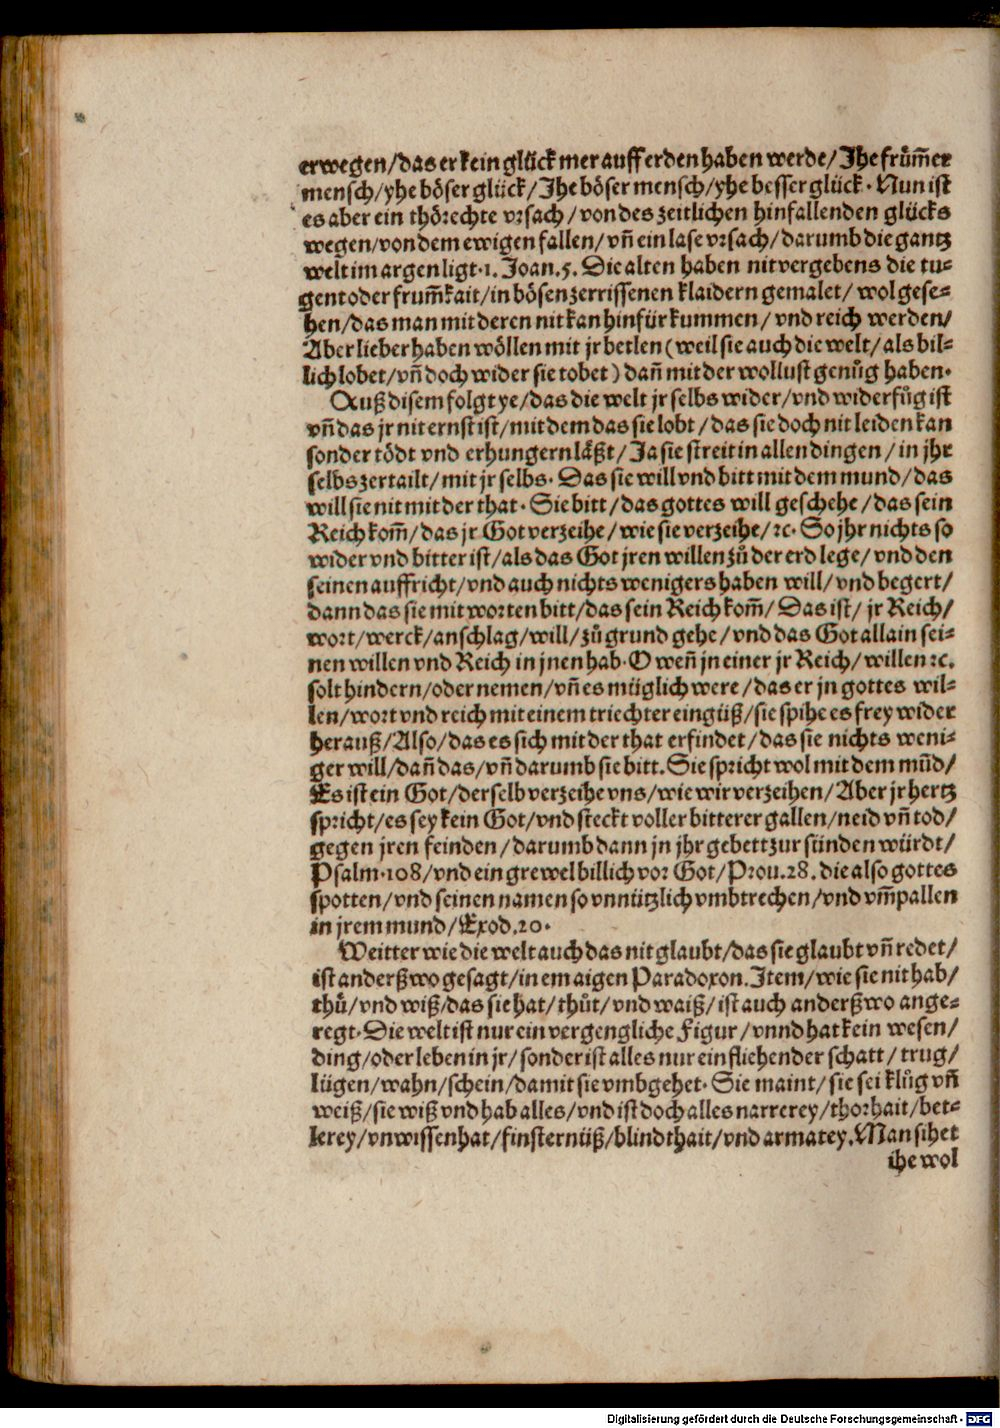 erwegen/das er kein glück mer auff erden haben werde/Jhe frům̃er
mensch/yhe böser glück/Jhe böser mensch/yhe besser glück. Nun ist
es aber ein thörechte vrsach/von des zeitlichen hinfallenden glücks
wegen/von dem ewigen fallen/vñ ein lase vrsach/darumb die gantz
welt im argen ligt.1. Joan.5. Die alten haben nit vergebens die tu⸗
gent oder frum̃kait/in bösen zerrissenen klaidern gemalet/wol gese⸗
hen/das man mit deren nit kan hinfür kummen/vnd reich werden/
Aber lieber haben wöllen mit jr betlen (weil sie auch die welt/als bil⸗
lich lobet/vñ doch wider sie tobet) dañ mit der wollust genůg haben.
Auß disem folgt ye/das die welt jr selbs wider/vnd widerfůg ist
vñ das jr nit ernst ist/mit dem das sie lobt/das sie doch nit leiden kan
sonder tödt vnd erhungern läßt/Ja sie streit in allen dingen/in jhr
selbs zertailt/mit jr selbs. Das sie will vnd bitt mit dem mund/das
will sie nit mit der that. Sie bitt/das gottes will geschehe/das sein
Reich kom̃/das jr Got verzeihe/wie sie verzeihe/ꝛc. So jhr nichts so
wider vnd bitter ist/als das Got jren willen zů der erd lege/vnd den
seinen auffricht/vnd auch nichts wenigers haben will/vnd begert/
dann das sie mit worten bitt/das sein Reich kom̃/Das ist/jr Reich/
wort/werck/anschlag/will/zů grund gehe/vnd das Got allain sei⸗
nen willen vnd Reich in jnen hab. O weñ jn einer jr Reich/willen ꝛc.
solt hindern/oder nemen/vñ es müglich were/das er jn gottes wil⸗
len/wort vnd reich mit einem triechter eingüß/sie spihe es frey wider
herauß/Also/das es sich mit der that erfindet/das sie nichts weni⸗
ger will/dañ das/vñ darumb sie bitt. Sie spricht wol mit dem mũd/
Es ist ein Got/der selb verzeihe vns/wie wir verzeihen/Aber jr hertz
spricht/es sey kein Got/vnd steckt voller bitterer gallen/neid vñ tod/
gegen jren feinden/darumb dann jn jhr gebett zur sünden würdt/
Psalm.108/vnd ein grewel billich vor Got/Prou.28. die also gottes
spotten/vnd seinen namen so vnnützlich vmbtrechen/vnd vm̃pallen
in jrem mund/Exod.20.
Weitter wie die welt auch das nit glaubt/das sie glaubt vñ redet/
ist anderßwo gesagt/in em aigen Paradoxon. Item/wie sie nit hab/
thů/vnd wiß/das sie hat/thůt/vnd waiß/ist auch anderßwo ange⸗
regt. Die welt ist nur ein vergengliche Figur/vnnd hat kein wesen/
ding/oder leben in jr/sonder ist alles nur ein fliehender schatt/trug/
lügen/wahn/schein/damit sie vmbgehet. Sie maint/sie sei klůg vñ
weiß/sie wiß vnd hab alles/vnd ist doch alles narrerey/thorhait/bet⸗
lerey/vnwissenhat/finsternüß/blindthait/vnd armatey. Man sihet
ihe wol
Digitalisierung gefördert durch die Deutsche Forschungsgemeinschaft - DFG